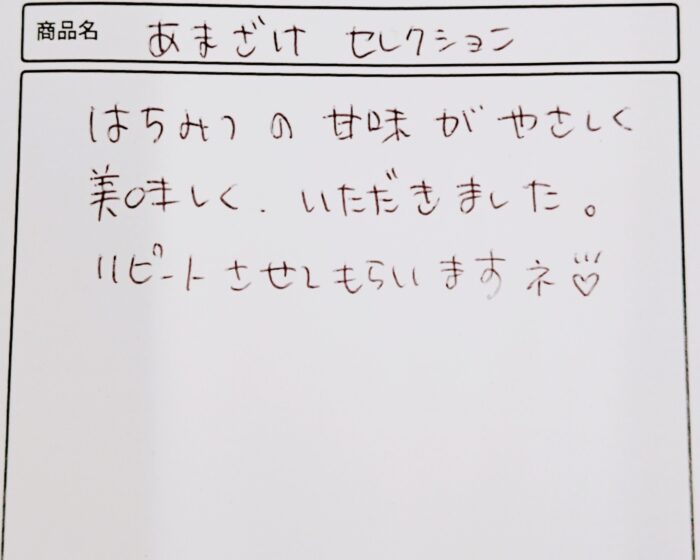 商品名 あまざけ セレクション
はちみつの甘味がやさしく
美味しく、いただきました。
リピートさせてもらいますネ♡